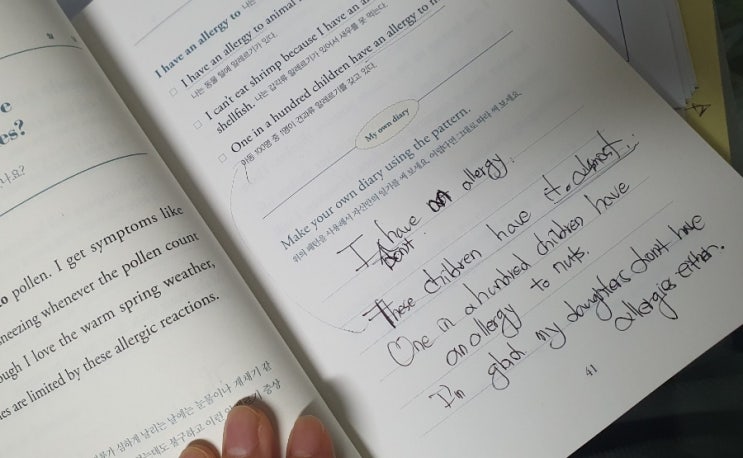 e
es?
나요?
o pollen. I get symptoms like
neezing whenever the pollen count
ough I love the warm spring weather,
es are limited by these allergic reactions.
I have an allergy to
I have an allergy to animal
나는 동물 털에 알레르기가 있다.
I can't eat shrimp because I have an
shellfish. 나는 갑각류 알레르기가 있어서 새우를 못 먹는다.
One in a hundred children have an allergy to
아동 100명 중 1명이 견과류 알레르기를 갖고 있다.
My own diary
Make your own diary using the pattern.
위의 패턴을 사용해서 자신만의 일기를 써 보세요. 어렵다면 그대로 따라 써 보세요.
I have an allergy.
don't
These children have it. almost.
One in a hundred children have
an allergy to nuts.
I'm glad my daughters don't have
allergies either.
41